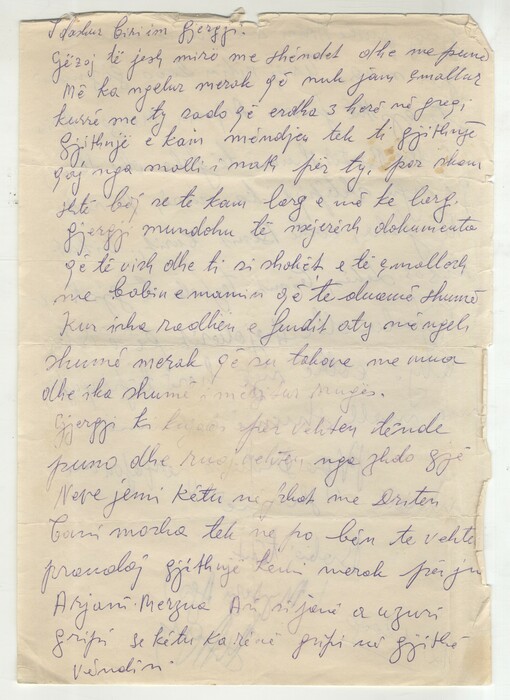 I dashur biri im Gjergji.
Gëzoj të jesh mirë me shëndet dhe me punë
Më ka ngelur merak që nuk jam çmallur
kurrë me ty sado që erdha 3 herë në greqi
gjithnjë e kam mëndjen tek ti gjithnjë
qaj nga malli i math për ty, por skam
shtë bëj se të kam larg e më ke larg.
gjergji mundohu të nxjerësh dokumenta
që të vish dhe ti si shokët e të çmallesh
me babin e mamin që të duamë shumë
Kur isha radhën e fundit aty më ngeli
shumë merak që su takove me mua
dhe ika shumë i mërzitur rruges.
Gjergji ti kujdes për vehten tënde
puno dhe ruaj vehten nga çdo gjë
Neve jemi këtu në fshat me Driten
Cami mozha tek ne po bën të vehtë
prandaj gjithnjë kemi merak për ju
Arjani Merzna si janë a u zuri
gripi se këtu ka rënë gripi në gjithë
vëndin.